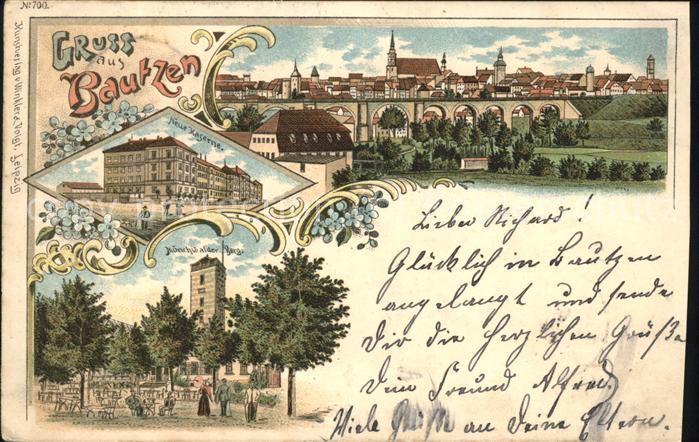 No 700.
Kunstverlag v. Winkler & Voigt, Leipzig
GRUSS
aus
Bautzen
Neue Kaserne.
Mönchswalder Berg.
Lieber Richard!
Glücklich in Bautzen
angelangt und sende
Dir die herzlichen Grüße
Dein Freund Alfred.
Viele Grüße an Deine Eltern.